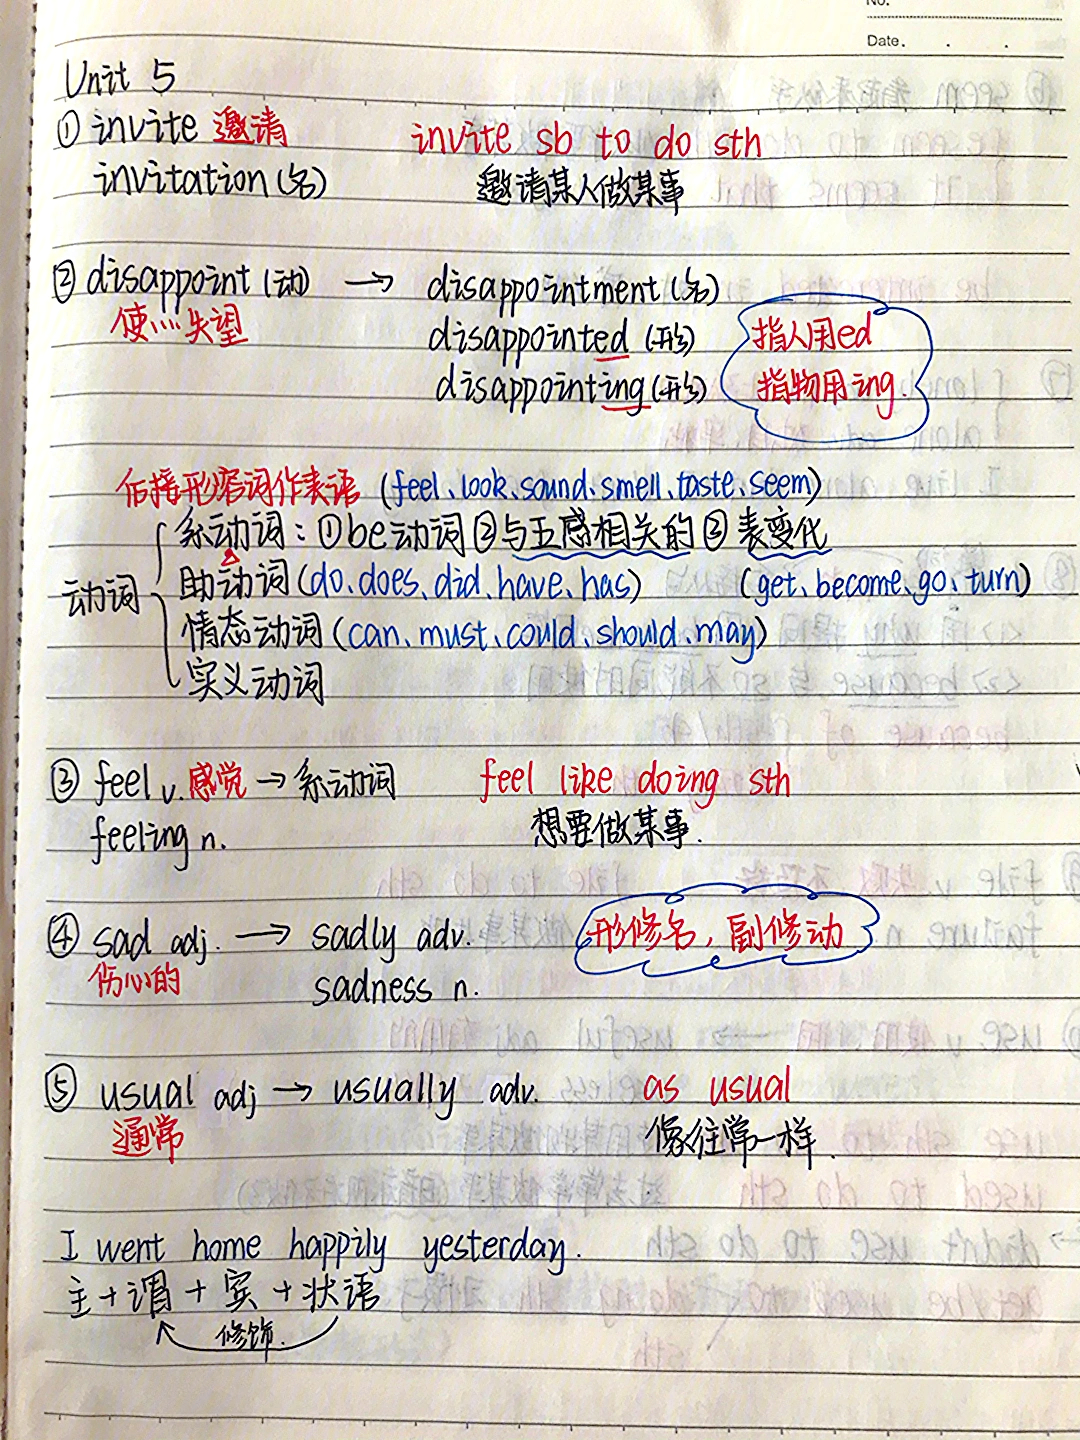 No.
Date.
Unit 5
① invite 邀请 invite sb to do sth
invitation (名) 邀请某人做某事
② disappoint (动) → disappointment (名)
使……失望
disappointed (形) 指人用ed
disappointing (形) 指物用ing.
后接形容词作表语 (feel、look、sound、smell、taste、seem)
系动词：①be动词 ②与五感相关的 ③ 表变化
动词 助动词 (do、does、did、have、has) (get、become、go、turn)
情态动词 (can、must、could、should、may)
实义动词
③ feel v. 感觉 → 系动词 feel like doing sth
feeling n. 想要做某事.
④ sad adj. → sadly adv. 形修名，副修动
伤心的
sadness n.
⑤ usual adj → usually adv. as usual
通常 像往常一样.
I went home happily yesterday.
主+谓+宾+状语
修饰.